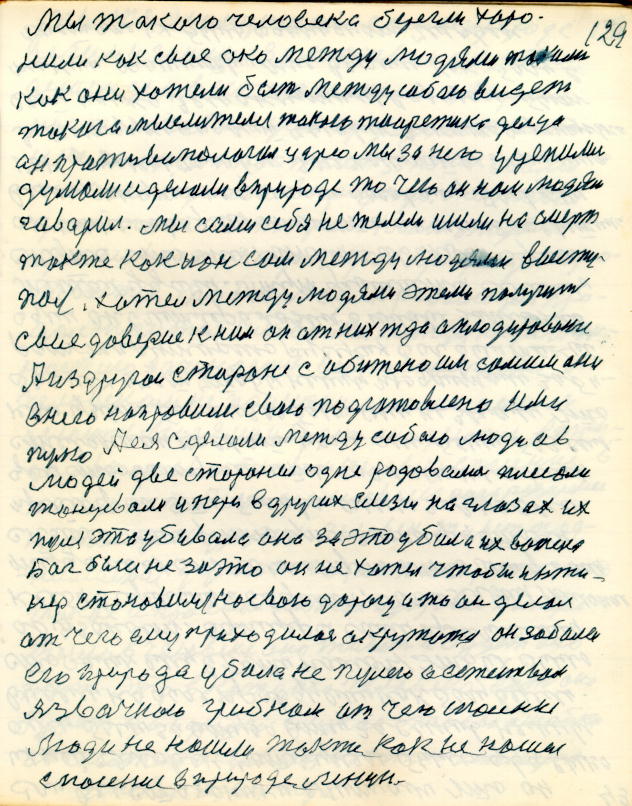 129
Мы такого человека берегли хоро-
нили как свое око между людями такими
как они хотели быть между собою видеть
такога мыслителя такова теоретика дела
ан противополагал царю мы за него уцепили
думали сделали в природе то чего он нам людям
гаварил. мы сами себя не жалели и шли на смерть
также как и он сам между людями высту-
пал. хотел между людями этеми получить
свае доверие к ним он от них жда аплодирование
А из другой стороне с обиженоими самими они
в него направили свою подготовлено ими
пулю Aея сделали между собою люди ав
людей две стороны одне радовалис плесали
танцевали и пели в других слезы на глазах их
пуля это убивала она за это убила их важена
Бог была не за это он не хотел чтобы инжи-
нер становился на свою дорогу и то он делал
от чего ему приходилося окружати он забалел
его природа убила не пулею а естеством
язвачкою грибком от чего спосение
люди не нашли также как не нашли
спасение в природе Ленин-